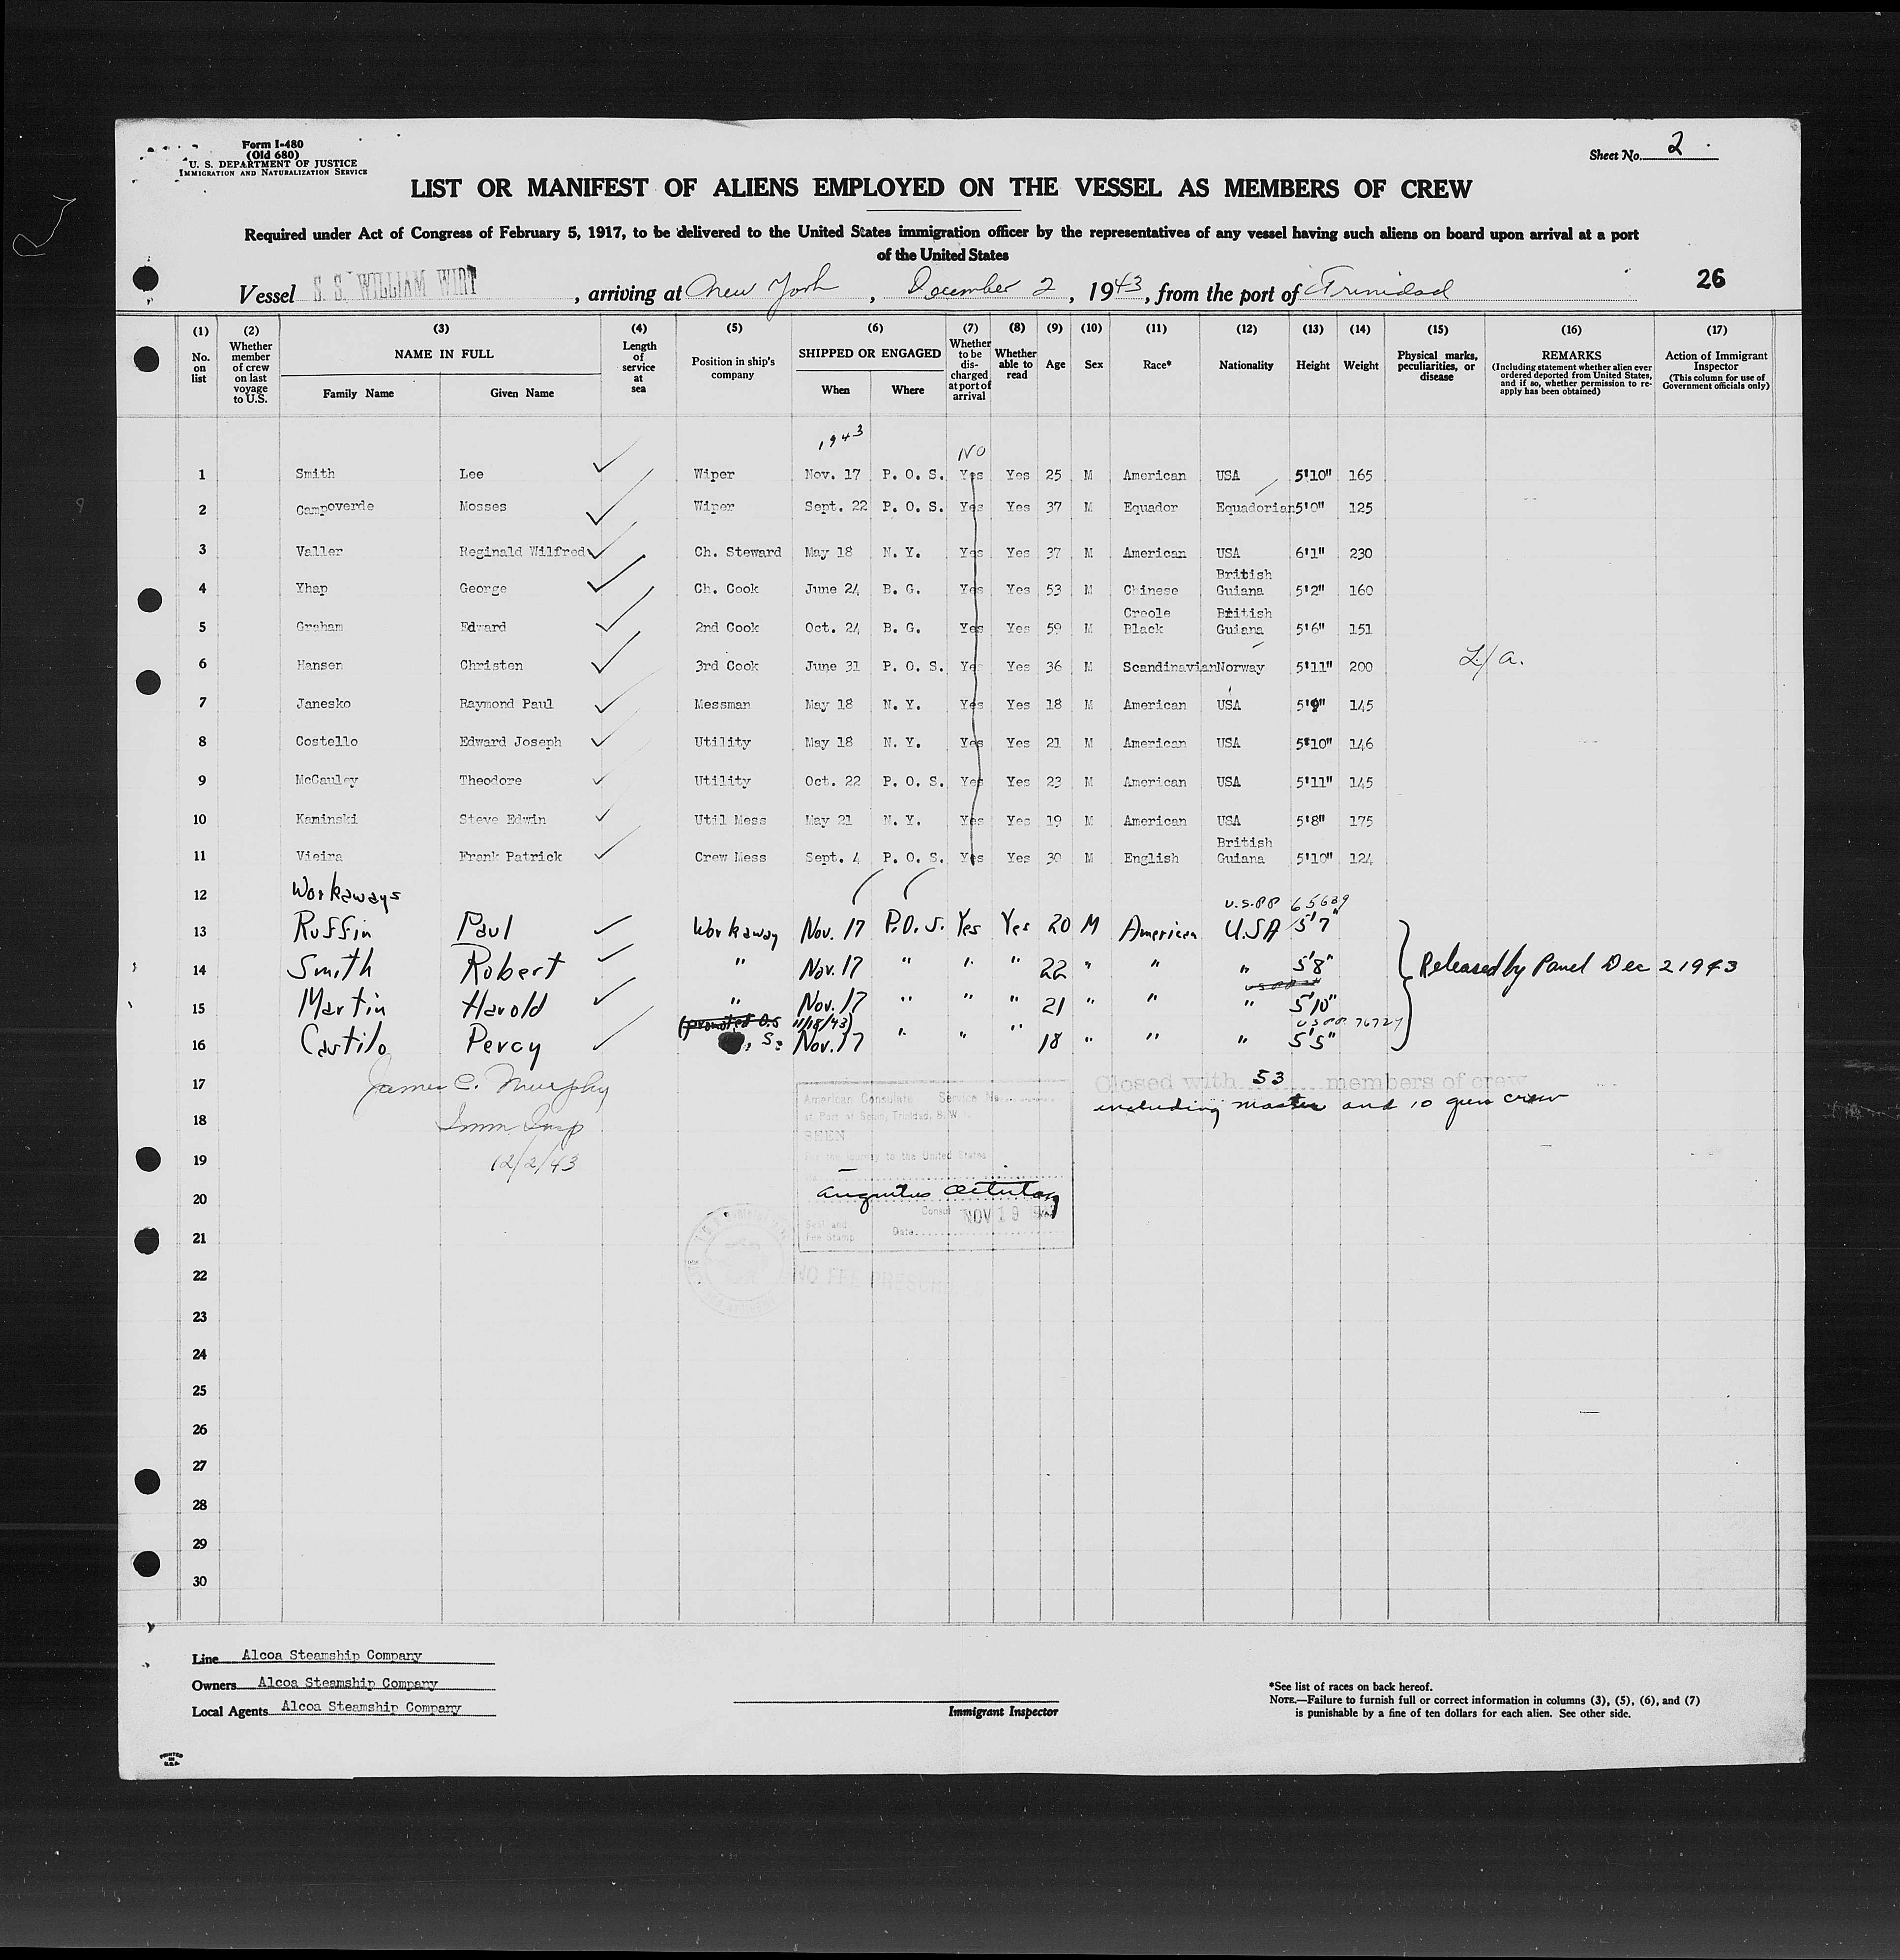 Form I-480
(Old 680)
U. S. DEPARTMENT OF JUSTICE
IMMIGRATION AND NATURALIZATION SERVICE
Sheet No. 2
LIST OR MANIFEST OF ALIENS EMPLOYED ON THE VESSEL AS MEMBERS OF CREW
Required under Act of Congress of February 5, 1917, to be delivered to the United States immigration officer by the representatives of any vessel having such aliens on board upon arrival at a port
of the United States
Vessel S. S. WILLIAM WIRT, arriving at New York, December 2, 1943, from the port of Trinidad
26
(1) No. on list
(2) Whether member of crew on last voyage to U.S.
(3) NAME IN FULL Family Name Given Name
(4) Length of service at sea
(5) Position in ship's company
(6) SHIPPED OR ENGAGED When Where
(7) Whether to be discharged at port of arrival
(8) Whether able to read
(9) Age
(10) Sex
(11) Race*
(12) Nationality
(13) Height
(14) Weight
(15) Physical marks, peculiarities, or disease
(16) REMARKS (Including statement whether alien ever ordered deported from United States, and if so, whether permission to reapply has been obtained)
(17) Action of Immigrant Inspector (This column for use of Government officials only)
1943 No
1 Smith Lee Wiper Nov. 17 P. O. S. Yes Yes 25 M American USA 5'10" 165
2 Campoverde Mosses Wiper Sept. 22 P. O. S. Yes Yes 37 M Equador Equadorian 5'0" 125
3 Valler Reginald Wilfred Ch. Steward May 18 N. Y. Yes Yes 37 M American USA 6'1" 230
4 Yhap George Ch. Cook June 24 B. G. Yes Yes 53 M Chinese British Guiana 5'2" 160
5 Graham Edward 2nd Cook Oct. 24 B. G. Yes Yes 59 M Creole Black British Guiana 5'6" 151
6 Hansen Christen 3rd Cook June 31 P. O. S. Yes Yes 36 M Scandinavian Norway 5'11" 200 L/a.
7 Janesko Raymond Paul Messman May 18 N. Y. Yes Yes 18 M American USA 5'9" 145
8 Costello Edward Joseph Utility May 18 N. Y. Yes Yes 21 M American USA 5'10" 146
9 McCauley Theodore Utility Oct. 22 P. O. S. Yes Yes 23 M American USA 5'11" 145
10 Kaminski Steve Edwin Util Mess May 21 N. Y. Yes Yes 19 M American USA 5'8" 175
11 Vieira Frank Patrick Crew Mess Sept. 4 P. O. S. Yes Yes 30 M English British Guiana 5'10" 124
12 Workaways U.S.PP 65639
13 Ruffin Paul Workaway Nov. 17 P.O.S. Yes Yes 20 M American U.S.A 5'7"
14 Smith Robert " Nov. 17 " " " 22 " " " 5'8" Released by Panel Dec 2 1943
15 Martin Harold " Nov. 17 " " " 21 " " " 5'10"
(promoted O.S 11/18/43) USPP. 76727
16 Castilo Percy , S. Nov. 17 " " " 18 " " " 5'5"
17 James C. Murphy Closed with 53 members of crew
including master and 10 gun crew
Imm. Insp
12/2/43
American Consulate Service No.
at Port of Spain, Trinidad, B.W.
SEEN
For the journey to the United States
Consul
NOV 19
Seal and Fee Stamp Date
NO FEE PRESCRIBED
18
19
20
21
22
23
24
25
26
27
28
29
30
Line Alcoa Steamship Company
Owners Alcoa Steamship Company
Local Agents Alcoa Steamship Company
Immigrant Inspector
*See list of races on back hereof.
NOTE.—Failure to furnish full or correct information in columns (3), (5), (6), and (7)
is punishable by a fine of ten dollars for each alien. See other side.
PRINTED IN U.S.A.